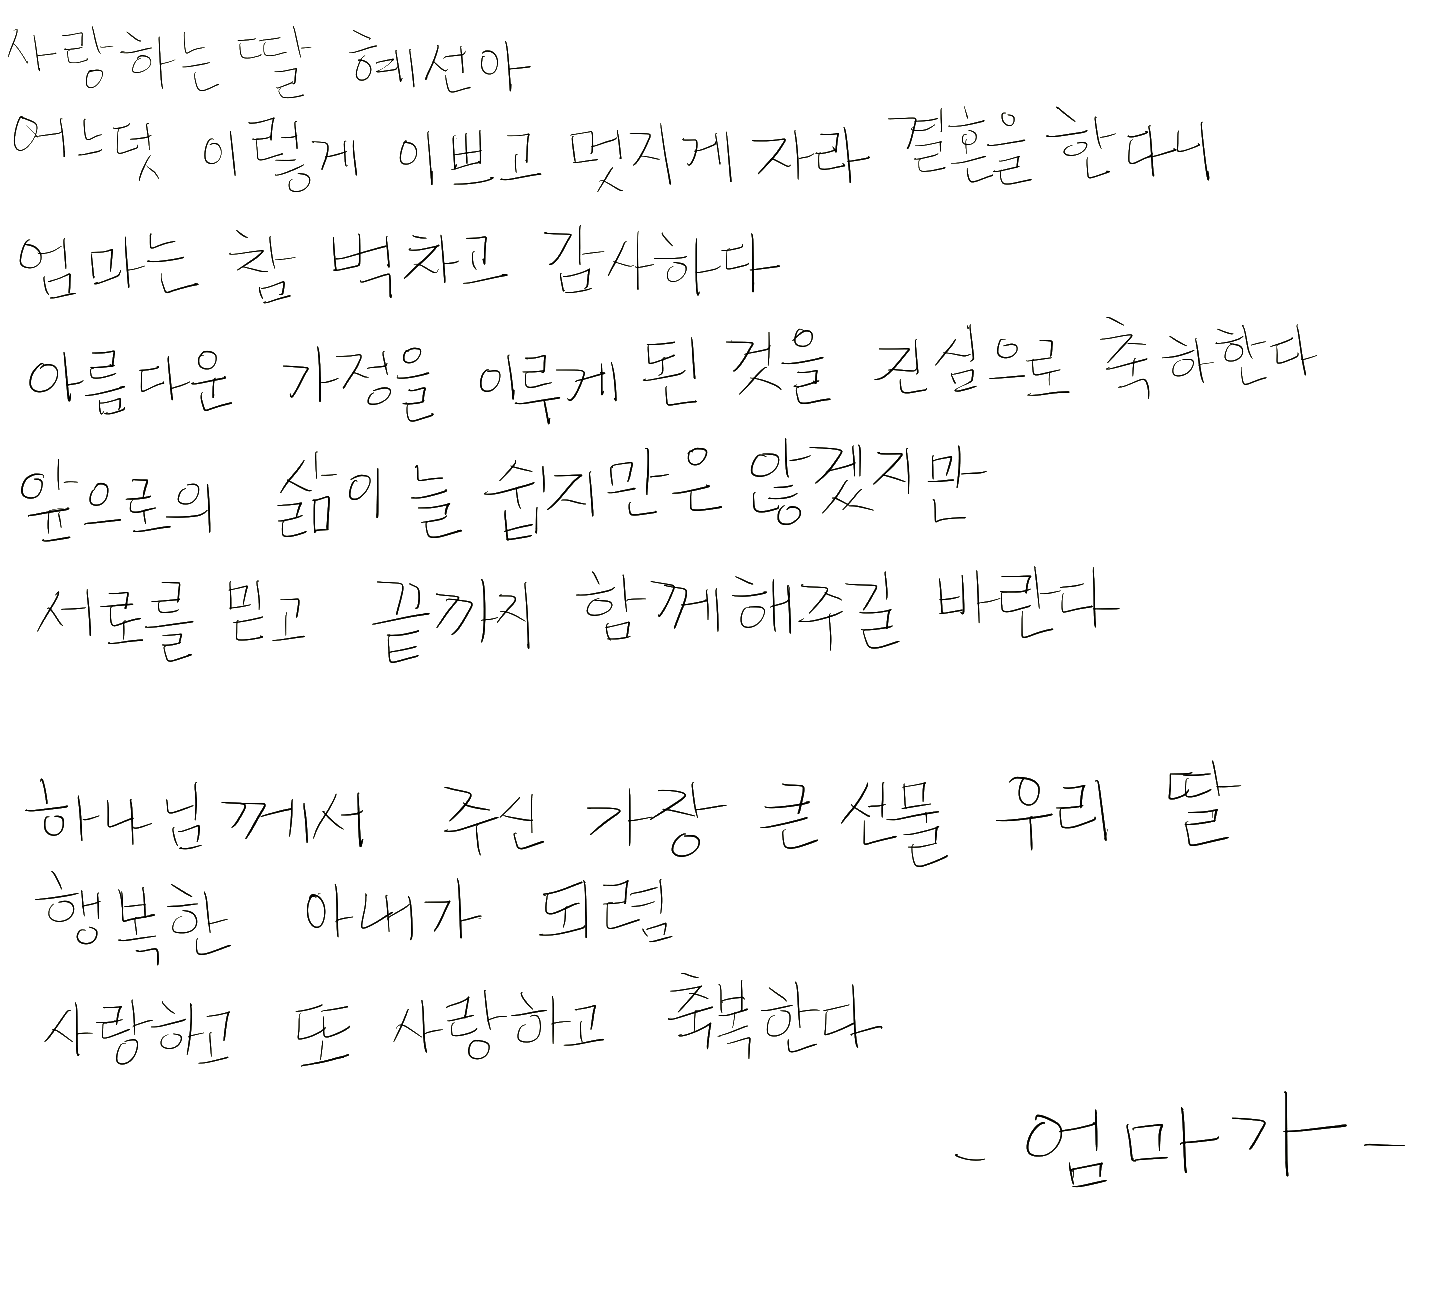 사랑하는 딸 혜선아
어느덧 이렇게 이쁘고 멋지게 자라 결혼을 한다니
엄마는 참 벅차고 감사하다
아름다운 가정을 이루게 된 것을 진심으로 축하한다
앞으로의 삶이 늘 쉽지만은 않겠지만
서로를 믿고 끝까지 함께해주길 바란다
하나님께서 주신 가장 큰 선물 우리 딸
행복한 아내가 되렴
사랑하고 또 사랑하고 축복한다
- 엄마가 -